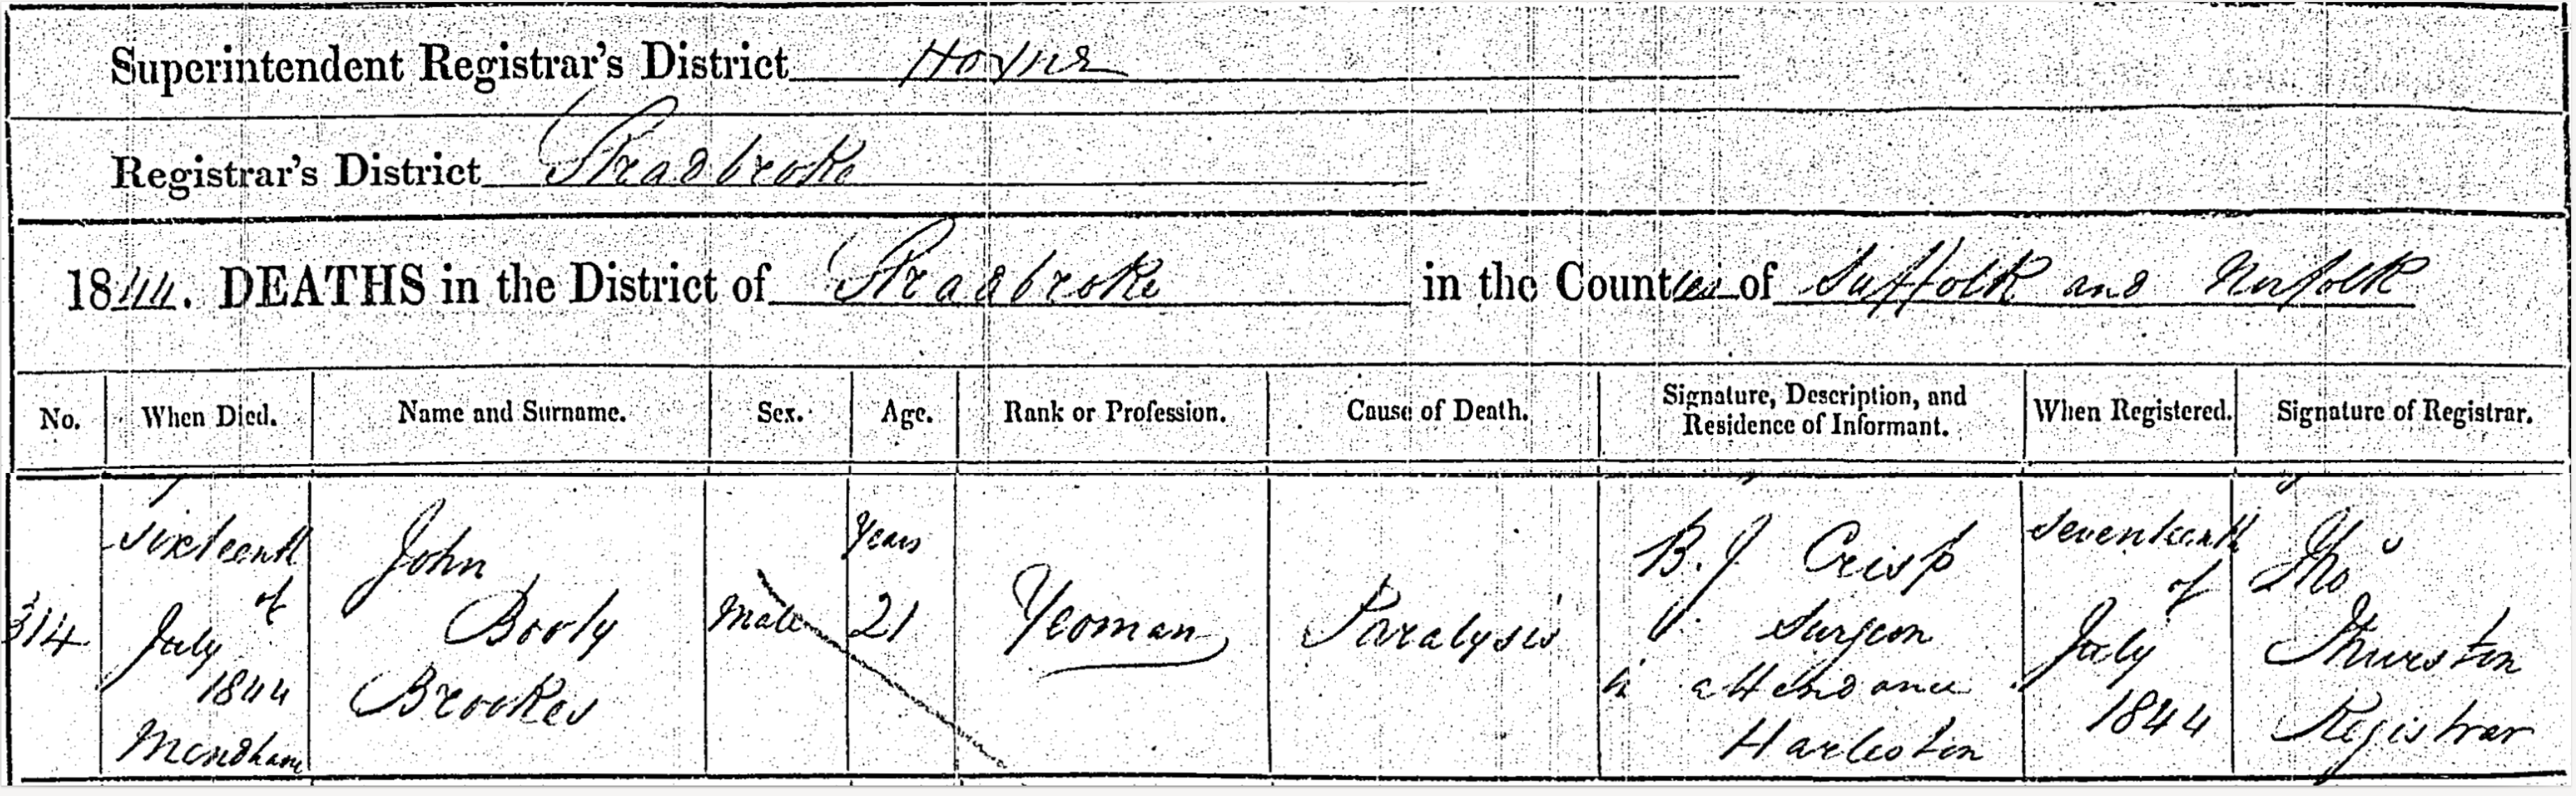 Superintendent Registrar's District Hoxne
Registrar's District Stradbroke
1844. DEATHS in the District of Stradbroke in the Counties of Suffolk and Norfolk
No. When Died. Name and Surname. Sex. Age. Rank or Profession. Cause of Death. Signature, Description, and Residence of Informant. When Registered. Signature of Registrar.
314
Sixteenth
of
July
1844
Mendham
John
Booly
Brookes
Male
Years
21
Yeoman
Paralysis
B. J. Crisp
Surgeon
in attendance
Harleston
Seventeenth
of
July
1844
Thos
Thurston
Registrar